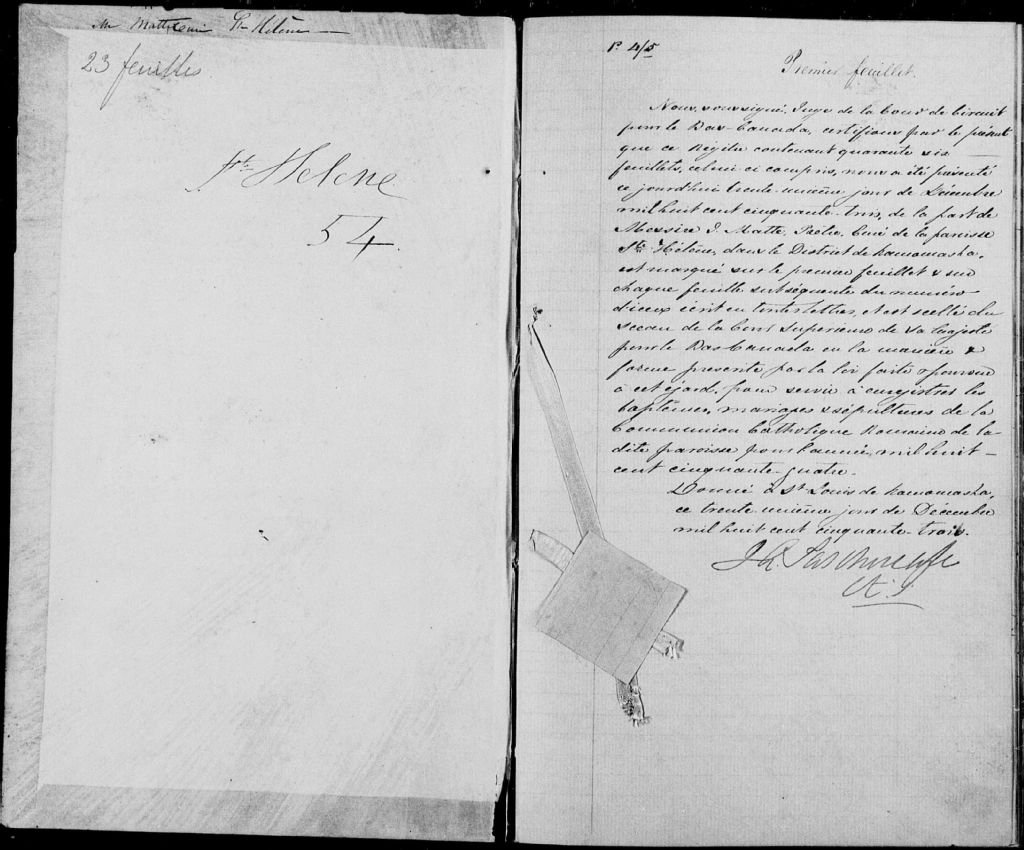 Mr Matte Ste Hélène
23 feuilles
Ste Helene
54.
P. 4/5
Premier feuillet.
Nous, soussigné, Juge de la Cour de Circuit
pour le Bas-Canada, certifions par le présent
que ce Régitre contenant quarante six
feuillets, celui ci compris, nous a été présenté
ce jourd'hui trente-unième jour de Décembre
mil huit cent cinquante-trois, de la part de
Messire J. Matte, Prêtre, Curé de la paroisse
Ste Hélène, dans le District de Kamouraska,
est marqué sur le premier feuillet & sur
chaque feuille subséquente du numéro
d'iceux écrit en toutes lettres, & est scellé du
sceau de la Cour Supérieure de Sa Majesté
pour le Bas Canada en la manière &
forme présente par la loi faite & pourvue
à cet égard, pour servir à enregistrer les
baptêmes, mariages & sépultures de la
Communion Catholique Romaine de la
dite paroisse pour l'année mil huit-
cent cinquante-quatre.
Donné à St Louis de Kamouraska,
ce trente-unième jour de Décembre
mil huit cent cinquante-trois.